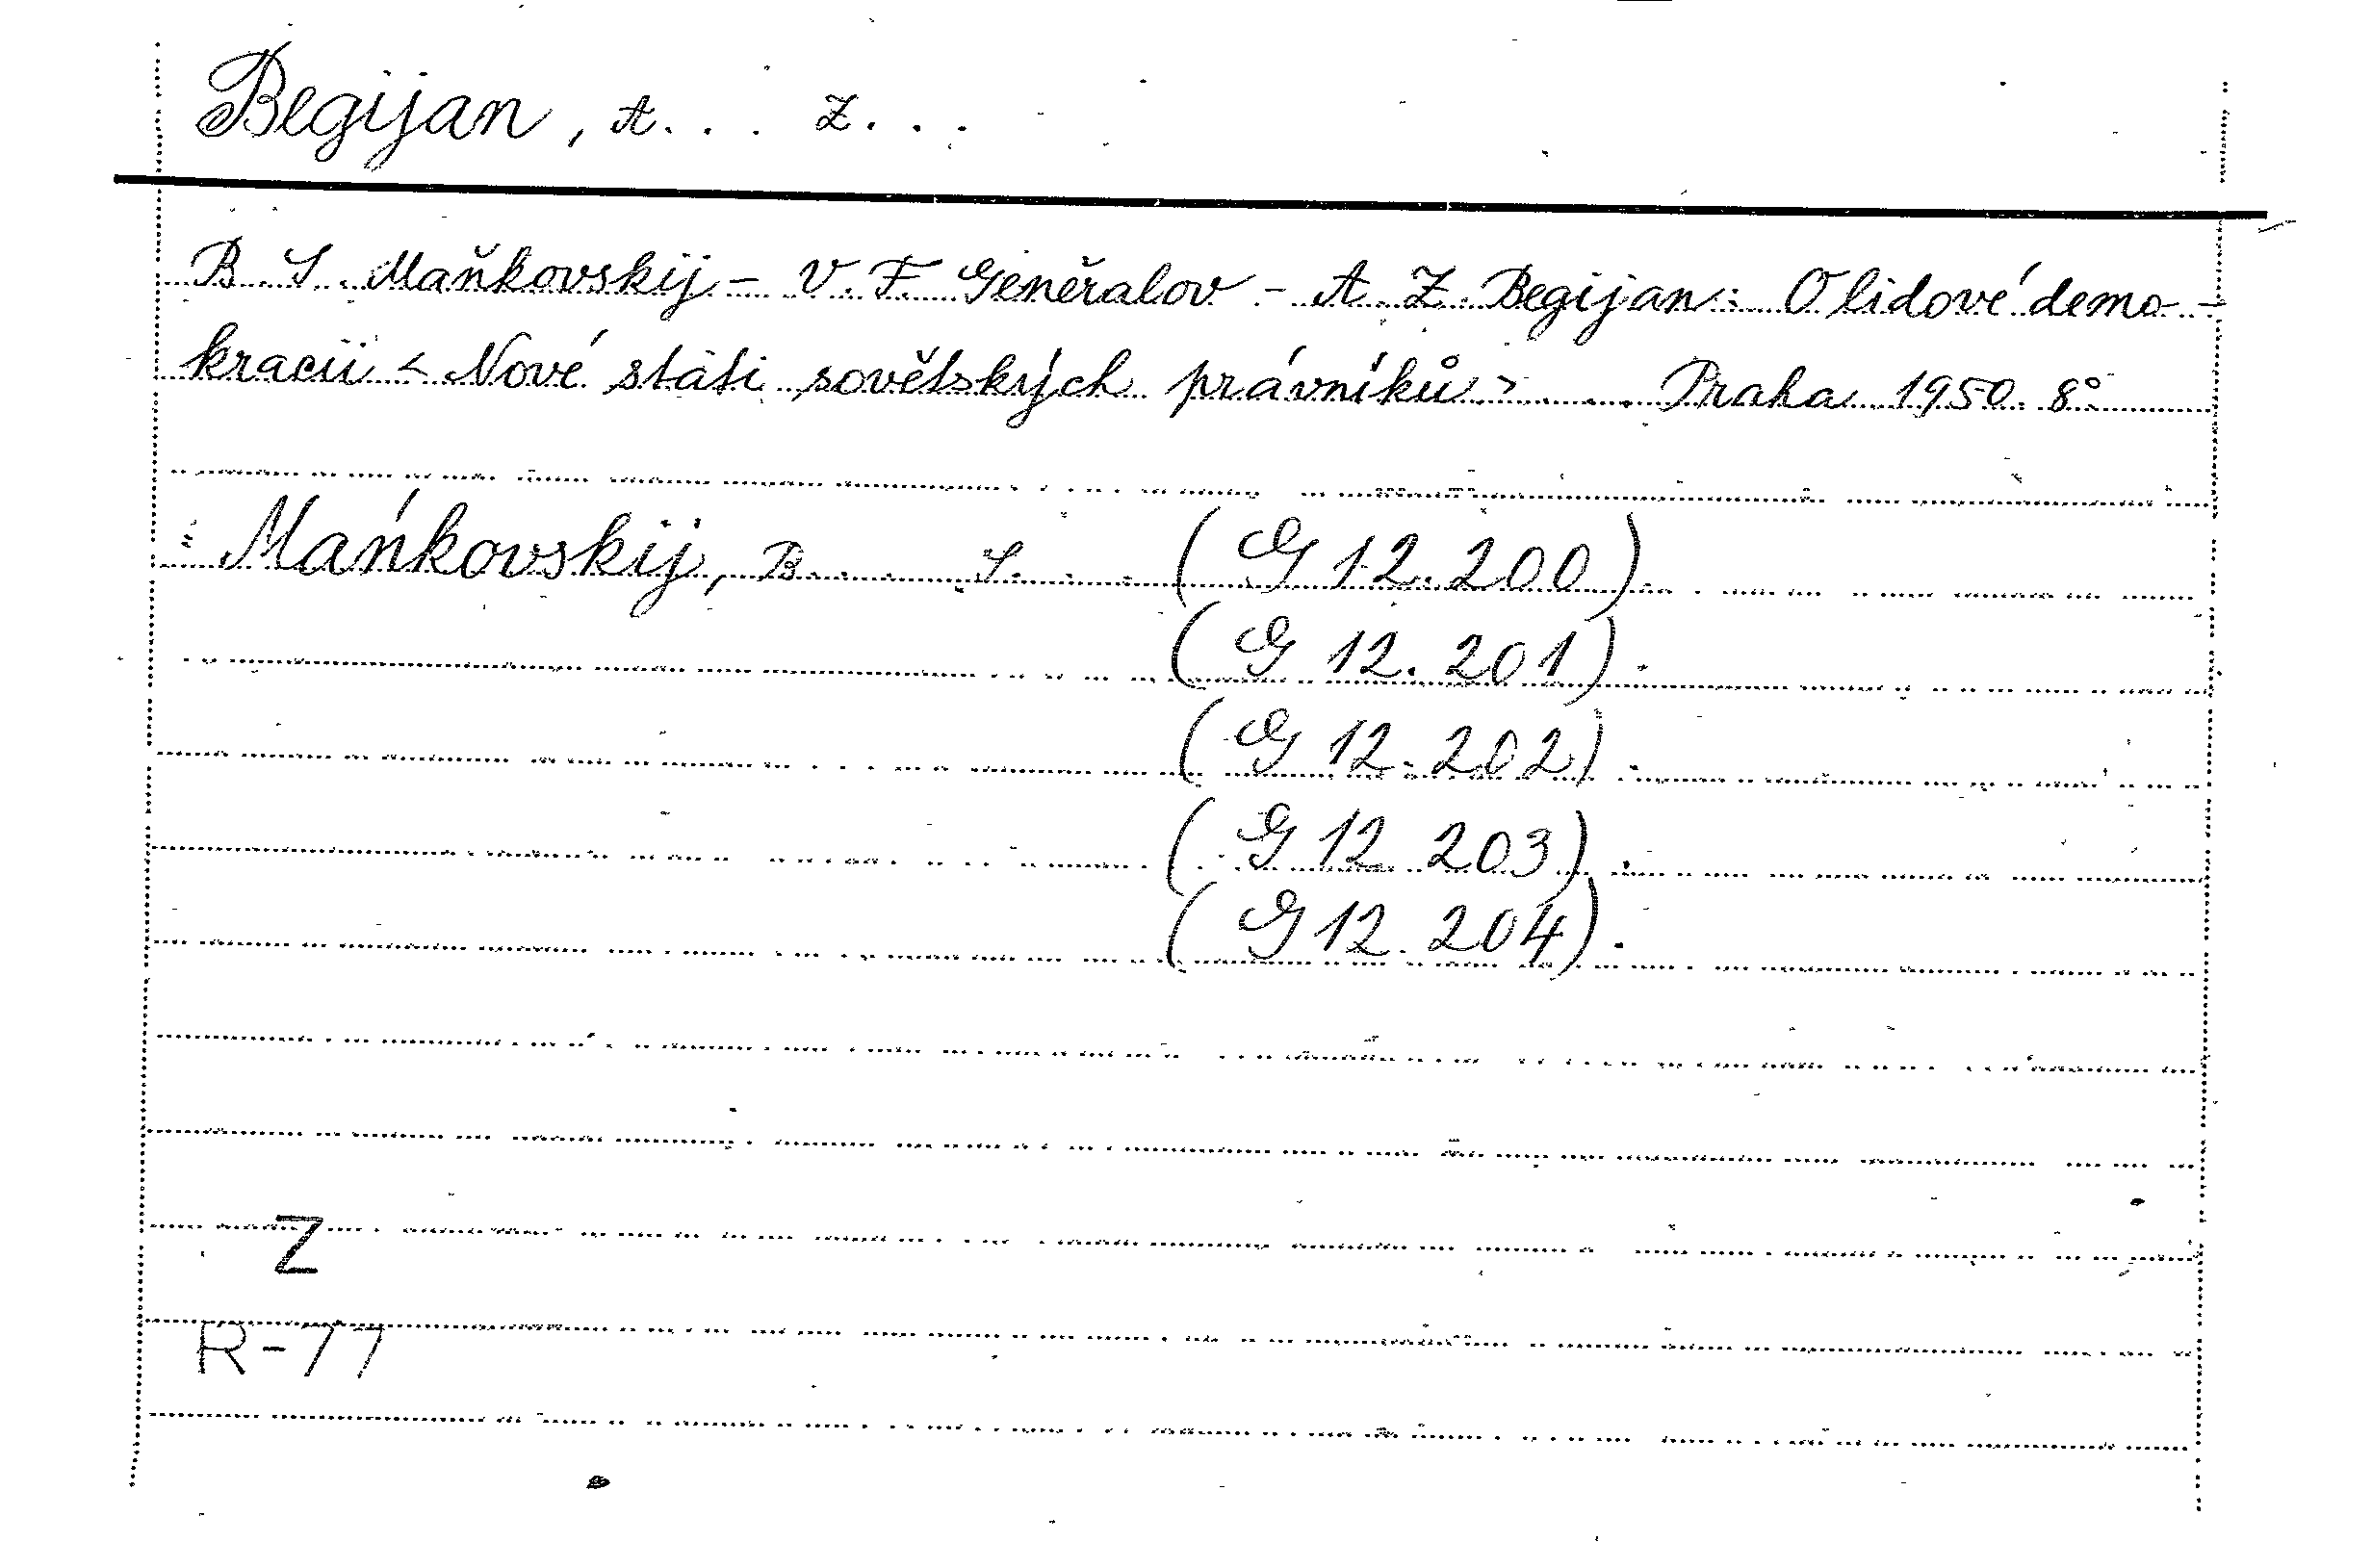 Begijan, A... Z...
B. S. Maňkovskij – V. F. Geněralov – A. Z. Begijan: O lidové demo-
kracii < Nové stati sovětských právníků > .... Praha 1950. 8°
: Mańkovskij, B... S... (G 12.200).
(G 12.201).
(G 12.202).
(G 12.203).
(G 12.204).
Z
R-77